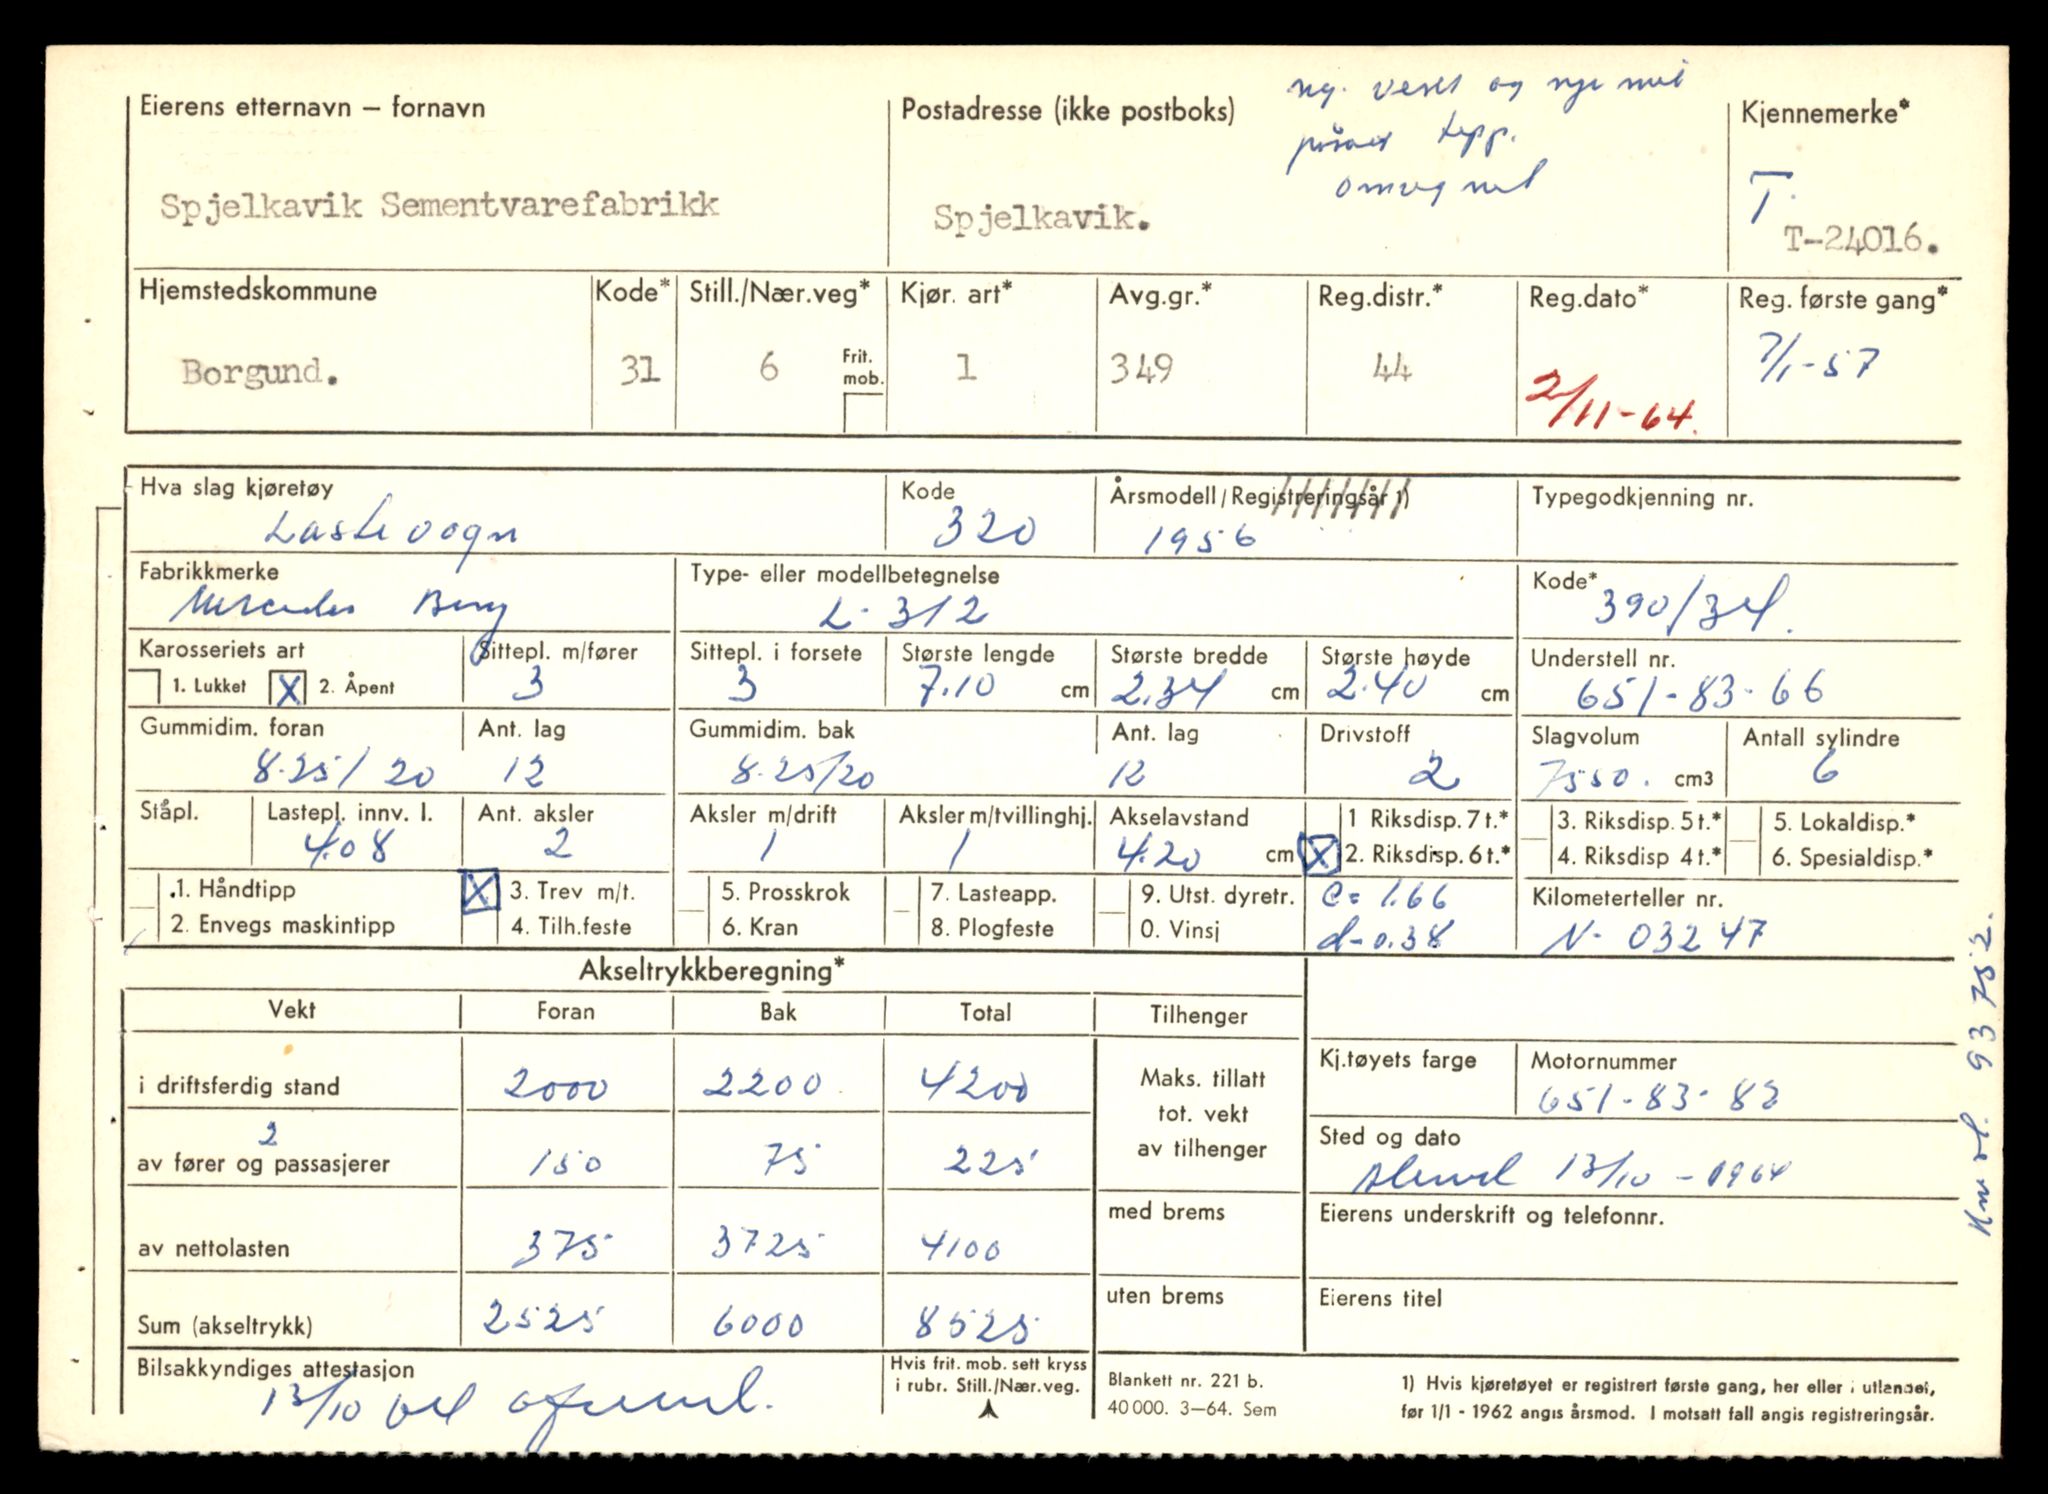 Eierens etternavn – fornavn
Postadresse (ikke postboks)
Kjennemerke*
og nye
omregnet
Spjelkavik Sementvarefabrikk
Spjelkavik.
T
T-24016.
Hjemstedskommune
Kode*
Still./Nær.veg*
Kjør. art*
Avg.gr.*
Reg.distr.*
Reg.dato*
Reg. første gang*
Borgund.
31
6
Frit.
mob.
1
349
44
2/11-64.
7/1-57
Hva slag kjøretøy
Kode
Årsmodell/Registreringsår 1)
Typegodkjenning nr.
Lastevogn
320
1956
Fabrikkmerke
Type- eller modellbetegnelse
Kode*
Mercedes Benz
L-312
390/34.
Karosseriets art
Sittepl. m/fører
Sittepl. i forsete
Største lengde
Største bredde
Største høyde
Understell nr.
1. Lukket
X 2. Åpent
3
3
7.10 cm
2.34 cm
2.40 cm
651-83-66
Gummidim. foran
Ant. lag
Gummidim. bak
Ant. lag
Drivstoff
Slagvolum
Antall sylindre
8.25/20
12
8.25/20
12
2
7550. cm3
6
Ståpl.
Lastepl. innv. l.
Ant. aksler
Aksler m/drift
Aksler m/tvillinghj.
Akselavstand
1 Riksdisp. 7 t.*
3. Riksdisp. 5 t.*
5. Lokaldisp.*
4.08
2
1
1
4.20 cm
X 2. Riksdisp. 6 t.*
4. Riksdisp 4 t.*
6. Spesialdisp.*
1. Håndtipp
X 3. Trev m/t.
5. Prosskrok
7. Lasteapp.
9. Utst. dyretr.
c= 1.66
Kilometerteller nr.
2. Envegs maskintipp
4. Tilh.feste
6. Kran
8. Plogfeste
0. Vinsj
d-0.38
N- 03247
Akseltrykkberegning*
Vekt
Foran
Bak
Total
Tilhenger
i driftsferdig stand
2000
2200
4200
Maks. tillatt
tot. vekt
av tilhenger
Kj.tøyets farge
Motornummer
651-83-82
2
av fører og passasjerer
150
75
225
Sted og dato
13/10 - 1964
av nettolasten
375
3725
4100
med brems
Eierens underskrift og telefonnr.
Sum (akseltrykk)
2525
6000
8525
uten brems
Eierens titel
Bilsakkyndiges attestasjon
13/10
Hvis frit. mob. sett kryss
i rubr. Still./Nær.veg.
Blankett nr. 221 b.
40 000. 3–64. Sem
1) Hvis kjøretøyet er registrert første gang, her eller i utlandet,
før 1/1 - 1962 angis årsmod. I motsatt fall angis registreringsår.
93752.